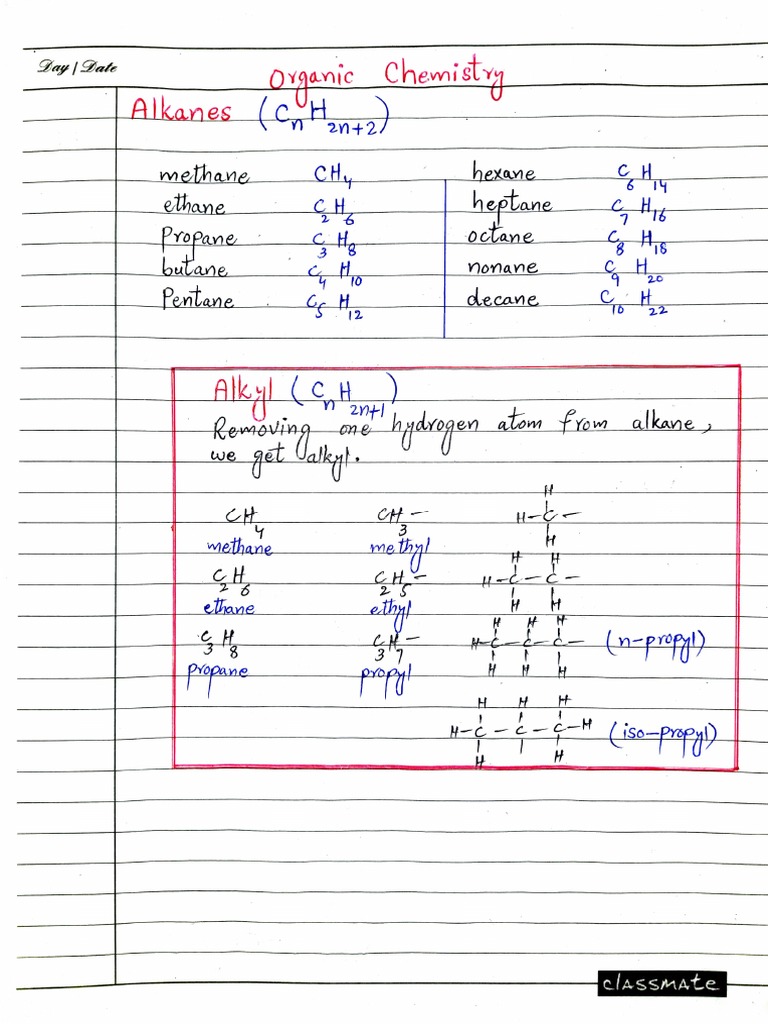 Day / Date
Organic Chemistry
Alkanes (CnH2n+2)
methane CH4 hexane C6H14
ethane C2H6 heptane C7H16
Propane C3H8 octane C8H18
butane C4H10 nonane C9H20
Pentane C5H12 decane C10H22
Alkyl (CnH2n+1)
Removing one hydrogen atom from alkane,
we get alkyl.
H
CH4 CH3– H–C–
methane methyl H
H H
C2H6 C2H5– H–C–C–
ethane ethyl H H
H H H
C3H8 C3H7– H–C–C–C– (n-propyl)
propane propyl H H H
H H H
H–C–C–C–H (iso-propyl)
H H
classmate